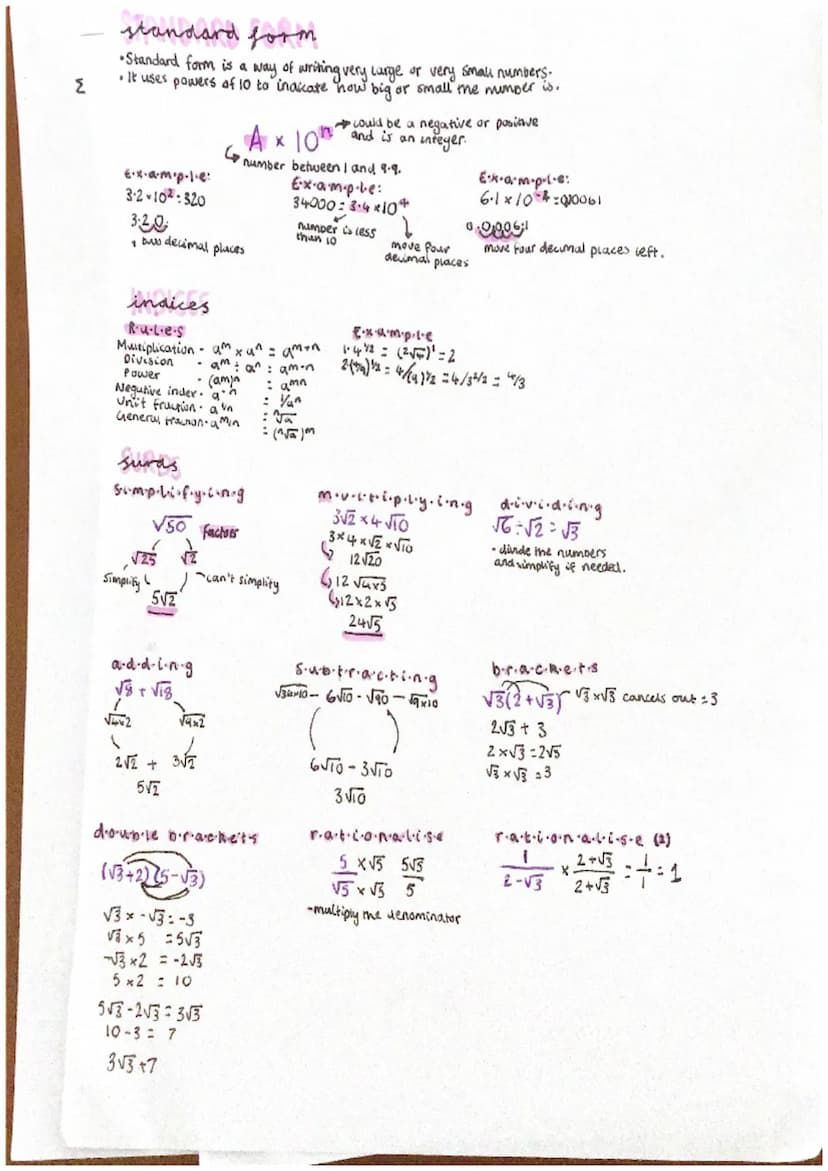 standard form
•Standard form is a way of writing very large or very small numbers.
•It uses powers of 10 to indicate how big or small the number is.
Σ
A × 10ⁿ → could be a negative or positive
and is an integer.
↳ number between 1 and 9.9.
E•x•a•m•p•l•e:
3.2×10²=320
3.20.
, two decimal places
E•x•a•m•p•l•e:
34000=3.4×10⁴
number is less
than 10
move four
decimal places
E•x•a•m•p•l•e:
0.0.0006.1
move four decimal places left.
indices
R•u•l•e•s
Multiplication - aᵐ × aⁿ = aᵐ⁺ⁿ
Division - aᵐ ÷ aⁿ = aᵐ⁻ⁿ
Power - (aᵐ)ⁿ = aᵐⁿ
Negative index - a⁻ⁿ = 1/aⁿ
Unit fraction - a¹/ⁿ = ⁿ√a
General fraction - aᵐ/ⁿ = (ⁿ√a)ᵐ
E•x•a•m•p•l•e
1. 4¹/² = (2√4)¹ = 2
surds
s•i•m•p•l•i•f•y•i•n•g
√50 factors
√25 √2
simplify can't simplify
5√2
m•u•l•t•i•p•l•y•i•n•g
3√2 × 4√10
3×4×√2×√10
12√20
↳12√4×5
↳12×2×√5
24√5
d•i•v•i•d•i•n•g
√6 ÷ √2 = √3
- divide the numbers
and simplify if needed.
a•d•d•i•n•g
√8 + √18
√4×2 √9×2
2√2 + 3√2
5√2
s•u•b•t•r•a•c•t•i•n•g
√36×10 - 6√10 - √90 - √9×10
6√10 - 3√10
3√10
b•r•a•c•k•e•t•s
√3(2+√3) √3×√3 cancels out = 3
2√3 + 3
2×√3=2√5
√3×√3=3
d•o•u•b•l•e b•r•a•c•k•e•t•s
(√3+2)(5-√3)
√3 × -√3 = -3
√3 × 5 = 5√3
-√3 × 2 = -2√3
5 × 2 = 10
5√3 - 2√3 = 3√3
10 - 3 = 7
3√3 + 7
r•a•t•i•o•n•a•l•i•s•e
5 ×√5 5√5
√5 ×√5 5
-multiply the denominator
r•a•t•i•o•n•a•l•i•s•e (2)
1/2-√3 × 2+√3/2+√3 = 1/1 = 1